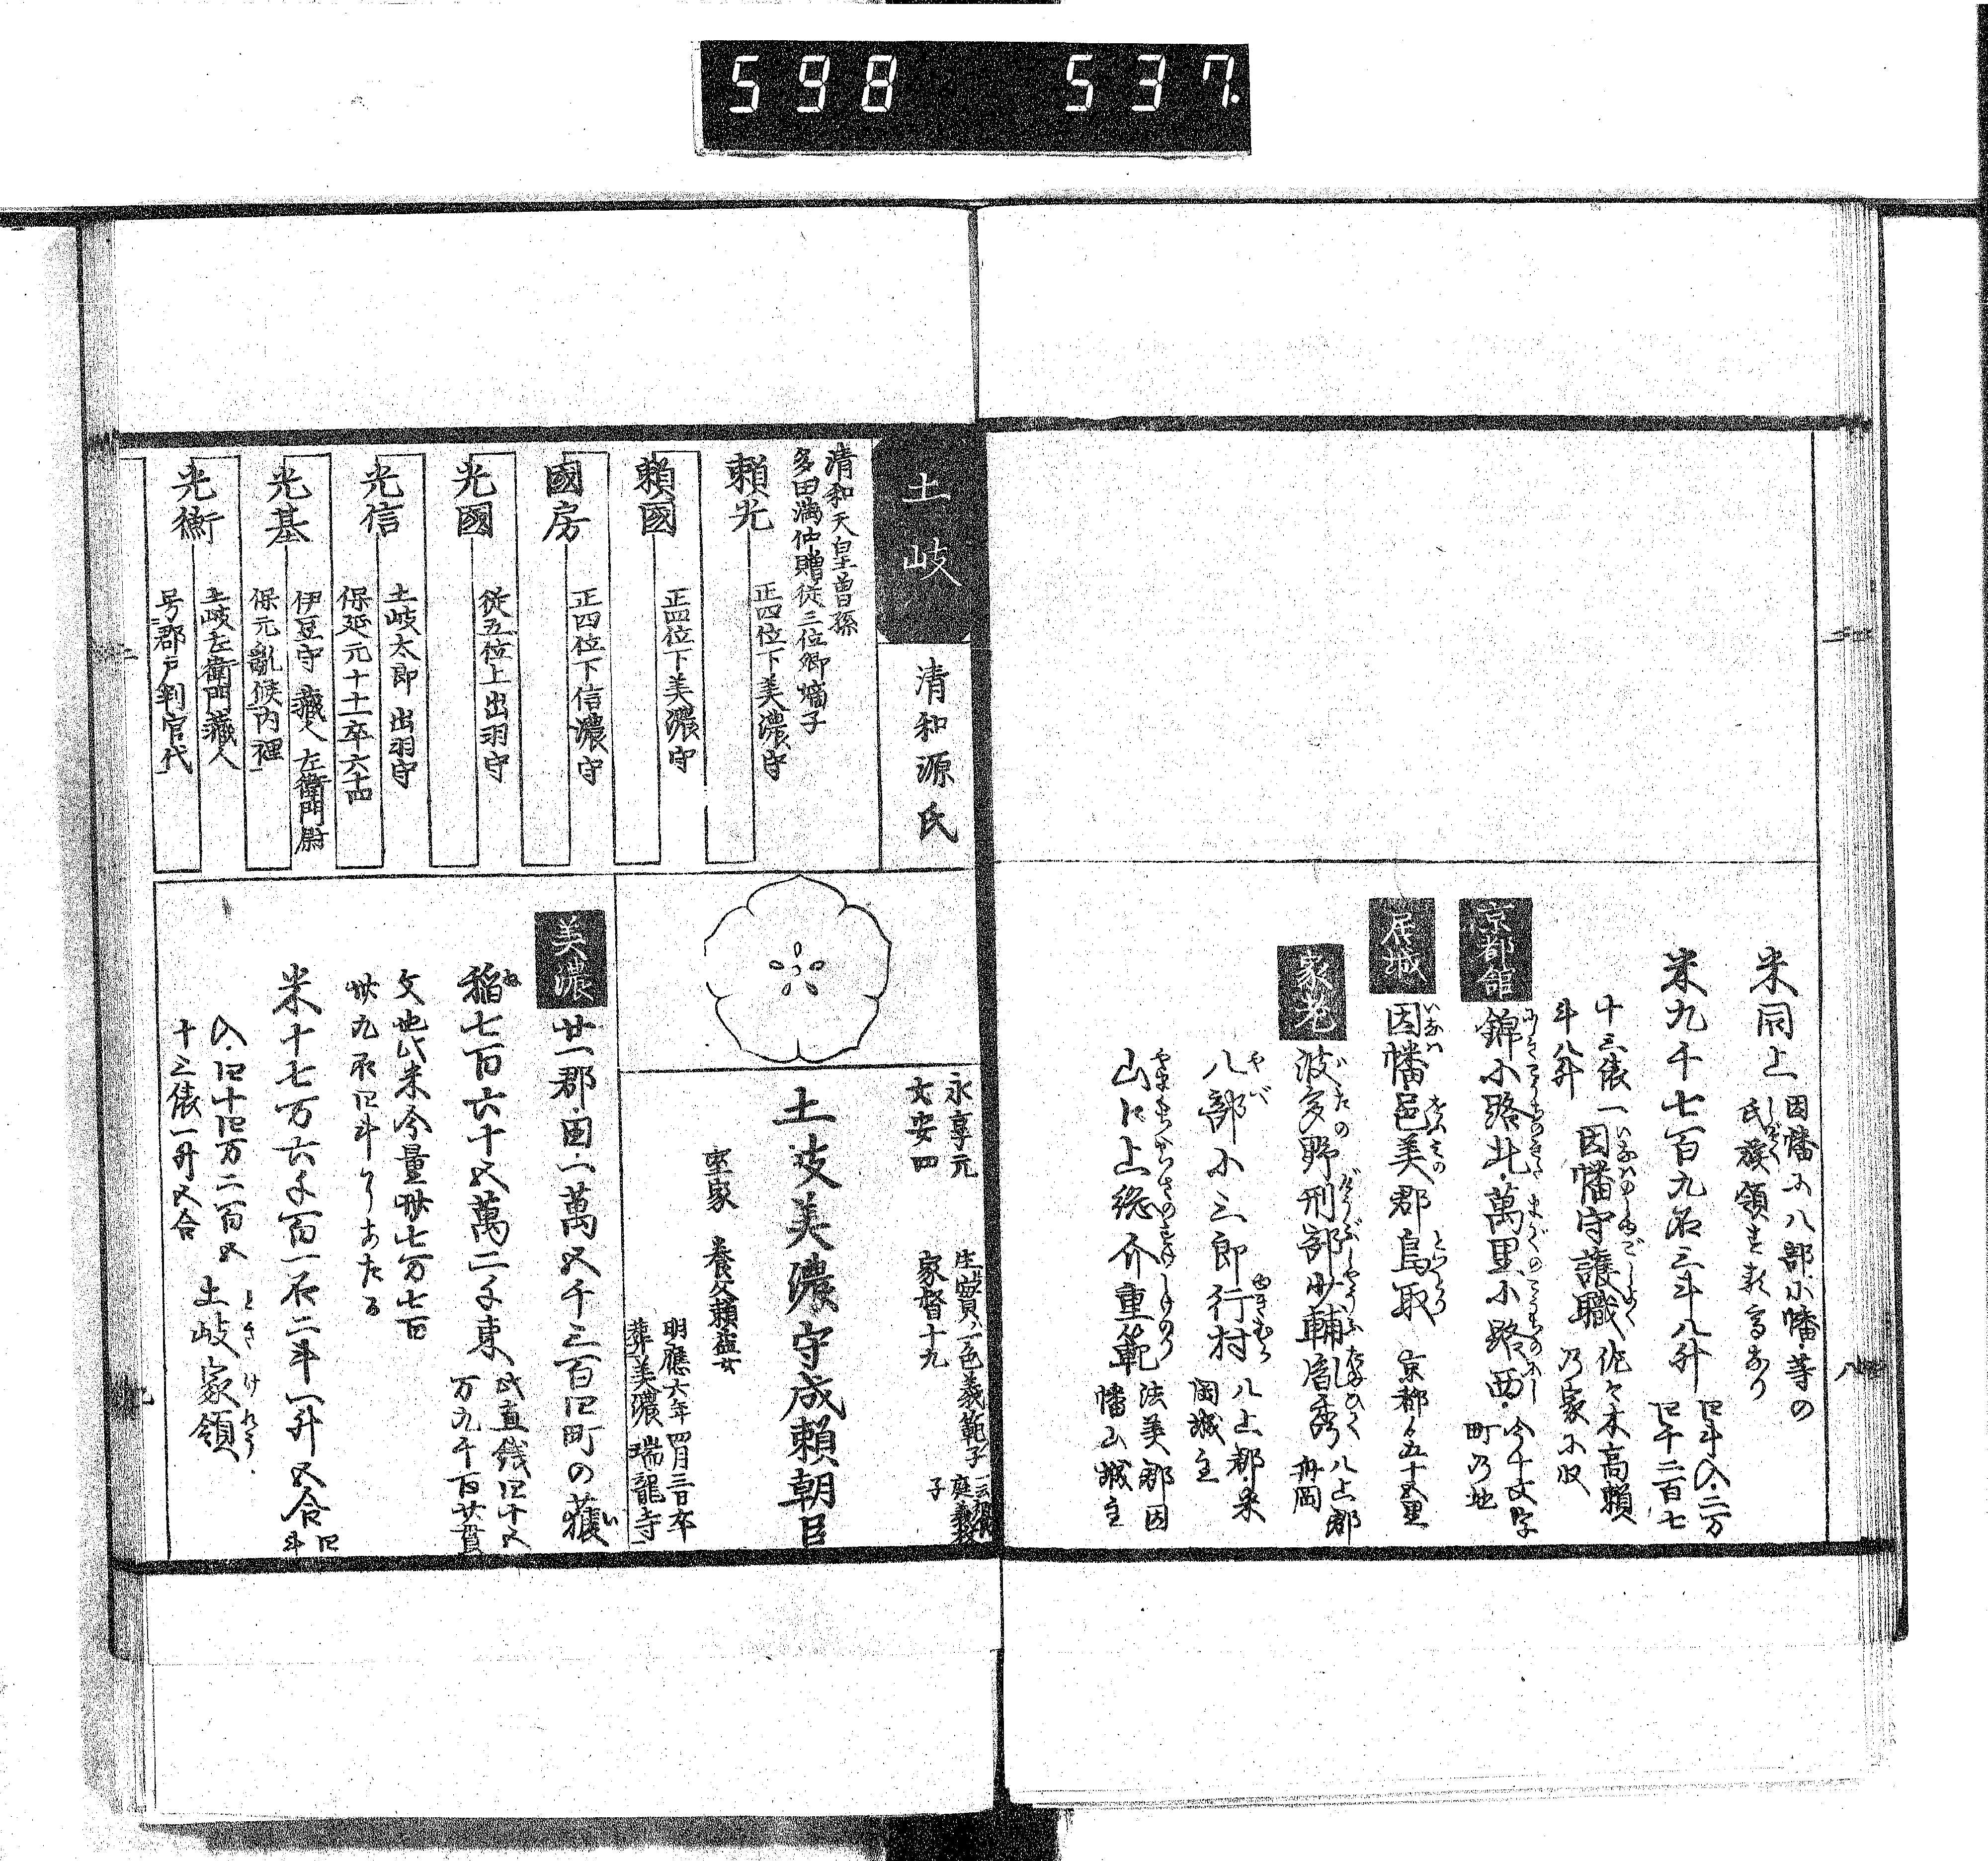 598 537.
米同上
因幡小八部小幡等の
氏族領
米九千七百九石三斗八升
四斗入二万
四千二百七
十三俵一
斗八升
因幡守護職
佐々木高頼
乃家
京都館
錦小路北萬里小路西
今十文字
町乃地
居城
因幡邑美郡鳥取
京都ゟ五十又里
家老
波多野刑部少輔
八上郡
舟岡
八部小三郎行村
八上郡
岡城主
山口上総介重範
法美郡因
幡山城主
土岐
清和源氏
清和天皇曽孫
多田満仲贈従三位卿嫡子
頼光
正四位下美濃守
頼國
正四位下美濃守
國房
正四位下信濃守
光國
従五位上出羽守
光信
土岐太郎 出羽守
保延元十十一卒六十四
光基
伊豆守 蔵人 左衛門尉
保元亂候内裡
光衡
土岐左衛門蔵人
号郡戸判官代
永享元
文安四
生実一色義範子
家督十九
土岐美濃守成頼朝臣
室家 養父頼益女
明應六年四月三日卒
葬美濃瑞龍寺
美濃
廿一郡田一萬又千三百四町の穫
稲七百六十又萬二千束
此直銭四十又
万九千百廿貫
文也此米今量卅七万七百
卅九石四斗りあたる
米十七万六千百一石二斗一升又合
四斗
入四十四万二百又
十三俵一升又合
土岐家領